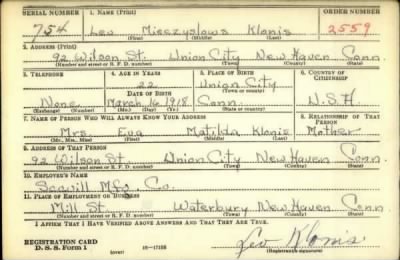 SERIAL NUMBER 1. NAME (Print) ORDER NUMBER
754 Leo Mieczyslows Klonis 2559
(First) (Middle) (Last)
2. ADDRESS (Print)
92 Wilson St. Union City New Haven Conn.
(Number and street or R. F. D. number) (Town) (County) (State)
3. TELEPHONE 4. AGE IN YEARS 5. PLACE OF BIRTH 6. COUNTRY OF CITIZENSHIP
22 Union City
DATE OF BIRTH (Town or county)
None March 16 1918 Conn. U.S.A.
(Exchange) (Number) (Mo.) (Day) (Yr.) (State or country)
7. NAME OF PERSON WHO WILL ALWAYS KNOW YOUR ADDRESS 8. RELATIONSHIP OF THAT PERSON
Mrs. Eva Matilda Klonis Mother
(Mr., Mrs., Miss) (First) (Middle) (Last)
9. ADDRESS OF THAT PERSON
92 Wilson St. Union City New Haven Conn
(Number and street or R. F. D. number) (Town) (County) (State)
10. EMPLOYER'S NAME
Scovill Mfg. Co.
11. PLACE OF EMPLOYMENT OR BUSINESS
Mill St. Waterbury New Haven Conn.
(Number and street or R. F. D. number) (Town) (County) (State)
I AFFIRM THAT I HAVE VERIFIED ABOVE ANSWERS AND THAT THEY ARE TRUE.
REGISTRATION CARD
D. S. S. Form 1 (over) 16—17105
Leo Klonis
(Registrant's signature)